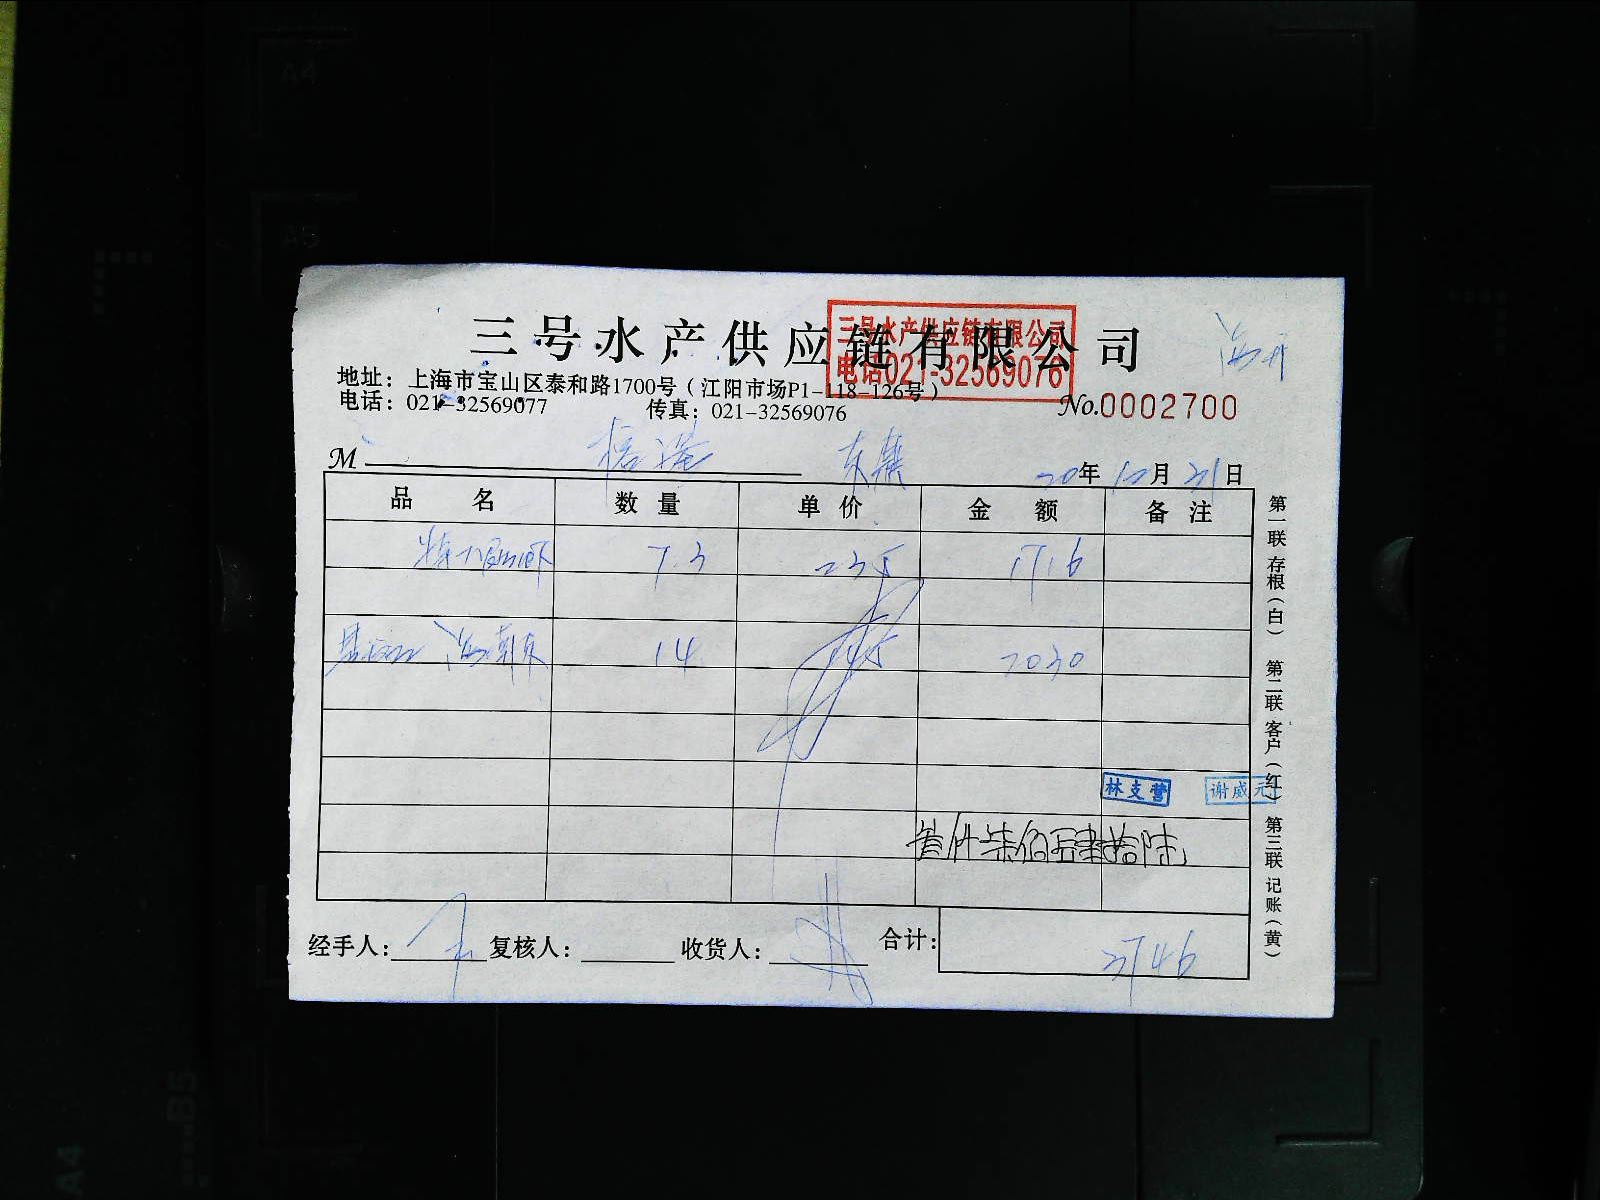 三号水产供应链有限公司
三号水产供应链有限公司
电话021-32569076
地址：上海市宝山区泰和路1700号（江阳市场P1-118-126号）
电话：021-32569077 传真：021-32569076
No.0002700
M
20年12月21日
品名 数量 单价 金额 备注
7.3 235 1716
海南 14 145 2030
林支营 谢威元
叁仟柒佰肆拾陆
经手人： 复核人： 收货人： 合计：3746
第一联 存根（白） 第二联 客户（红） 第三联 记账（黄）